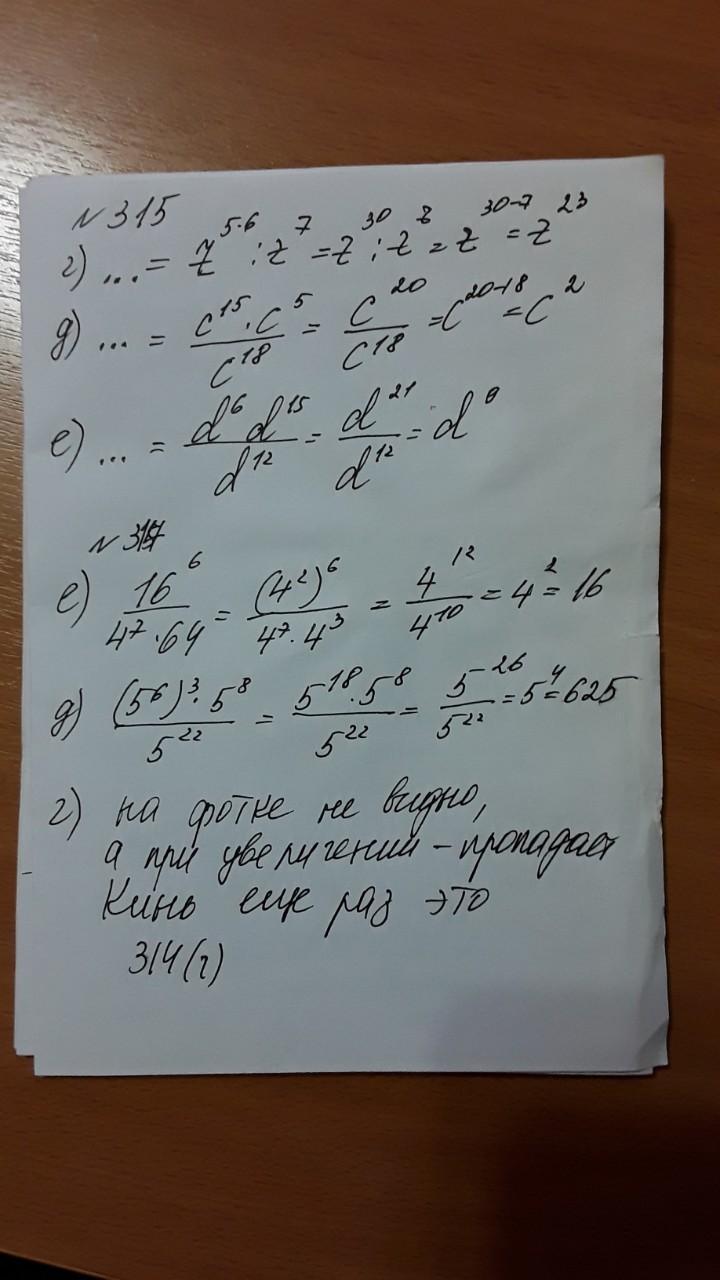 №315
г) ... = z^5·6 : z^7 = z^30 : z^7 = z^30-7 = z^23
д) ... = c^15 · c^5 / c^18 = c^20 / c^18 = c^20-18 = c^2
е) ... = d^6 d^15 / d^12 = d^21 / d^12 = d^9
№317
е) 16^6 / 4^7 · 64 = (4^2)^6 / 4^7 · 4^3 = 4^12 / 4^10 = 4^2 = 16
д) (5^6)^3 · 5^8 / 5^22 = 5^18 · 5^8 / 5^22 = 5^26 / 5^22 = 5^4 = 625
г) на фотке не видно,
а при увеличении – пропадает
Кинь еще раз это
314(г)